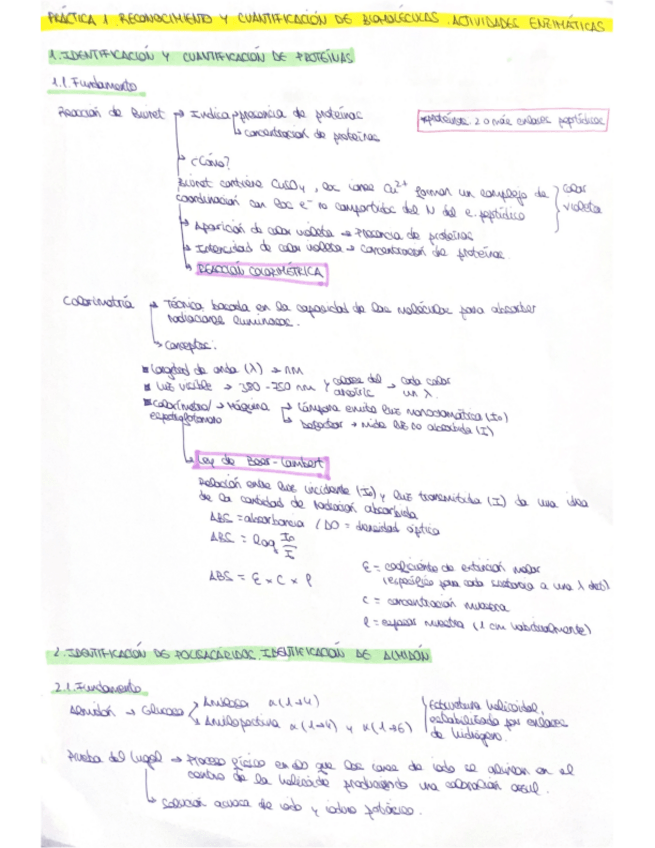 PRÁCTICA 1. RECONOCIMIENTO Y CUANTIFICACIÓN DE BIOMOLÉCULAS. ACTIVIDADES ENZIMÁTICAS
1. IDENTIFICACIÓN Y CUANTIFICACIÓN DE PROTEÍNAS
1.1. Fundamento
Reacción de Biuret → Indica → presencia de proteínas
↳ concentración de proteínas
*proteínas: 2 o más enlaces peptídicos
→ ¿Cómo?
Biuret contiene CuSO4, los iones Cu2+ forman un complejo de
coordinación con los e- no compartidos del N del e. peptídico
color
violeta
→ Aparición de color violeta → Presencia de proteínas
→ Intensidad de color violeta → concentración de proteínas.
→ REACCIÓN COLORIMÉTRICA
Colorimetría → Técnica basada en la capacidad de las moléculas para absorber
radiaciones luminosas.
↳ conceptos:
■ Longitud de onda (λ) → nm
■ Luz visible → 380-750 nm y colores del → cada color
arcoíris un λ.
■ Colorímetro/ → Máquina → Lámpara emite luz monocromática (I0)
espectrofotómetro ↳ Detector → mide luz no absorbida (I)
↳ Ley de Beer-Lambert
Relación entre luz incidente (I0) y luz transmitida (I) da una idea
de la cantidad de radiación absorbida
ABS = absorbancia / DO = densidad óptica
ABS = log I0/I
ABS = E × C × l
E = coeficiente de extinción molar
(específico para cada sustancia a una λ dets)
C = concentración muestra
l = espesor muestra (1 cm habitualmente)
2. IDENTIFICACIÓN DE POLISACÁRIDOS. IDENTIFICACIÓN DE ALMIDÓN
2.1. Fundamento
Almidón → Glucosa → Amilosa α(1→4)
→ Amilopectina α(1→4) y α(1→6)
Estructura helicoidal,
estabilizada por enlaces
de hidrógeno.
Prueba del lugol → Proceso físico en el que los iones de iodo se alinean en el
centro de la helicoide produciendo una coloración azul.
↳ Solución acuosa de iodo y ioduro potásico.